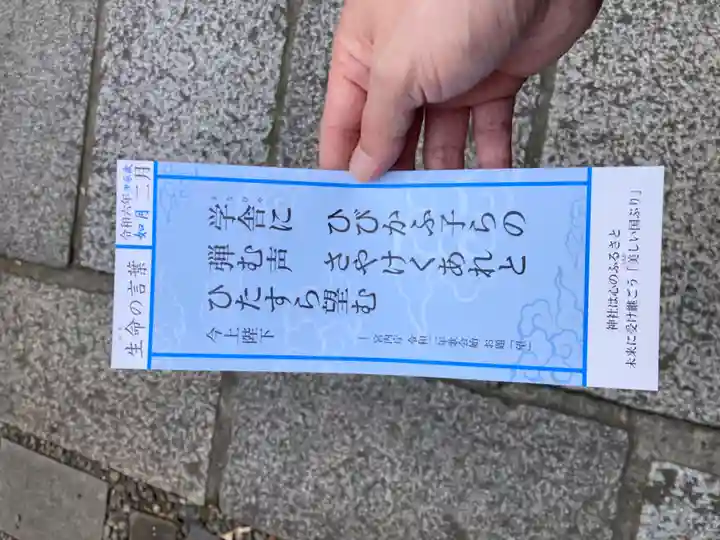 令和六年甲辰歳
如月
二月
生命の言葉
学舎に ひびかふ子らの
弾む声 さやけくあれと
ひたすら望む
今上陛下
宮内庁 令和二年歌会始 お題「望」
神社は心のふるさと
未来に受け継ごう「美しい国ぶり」